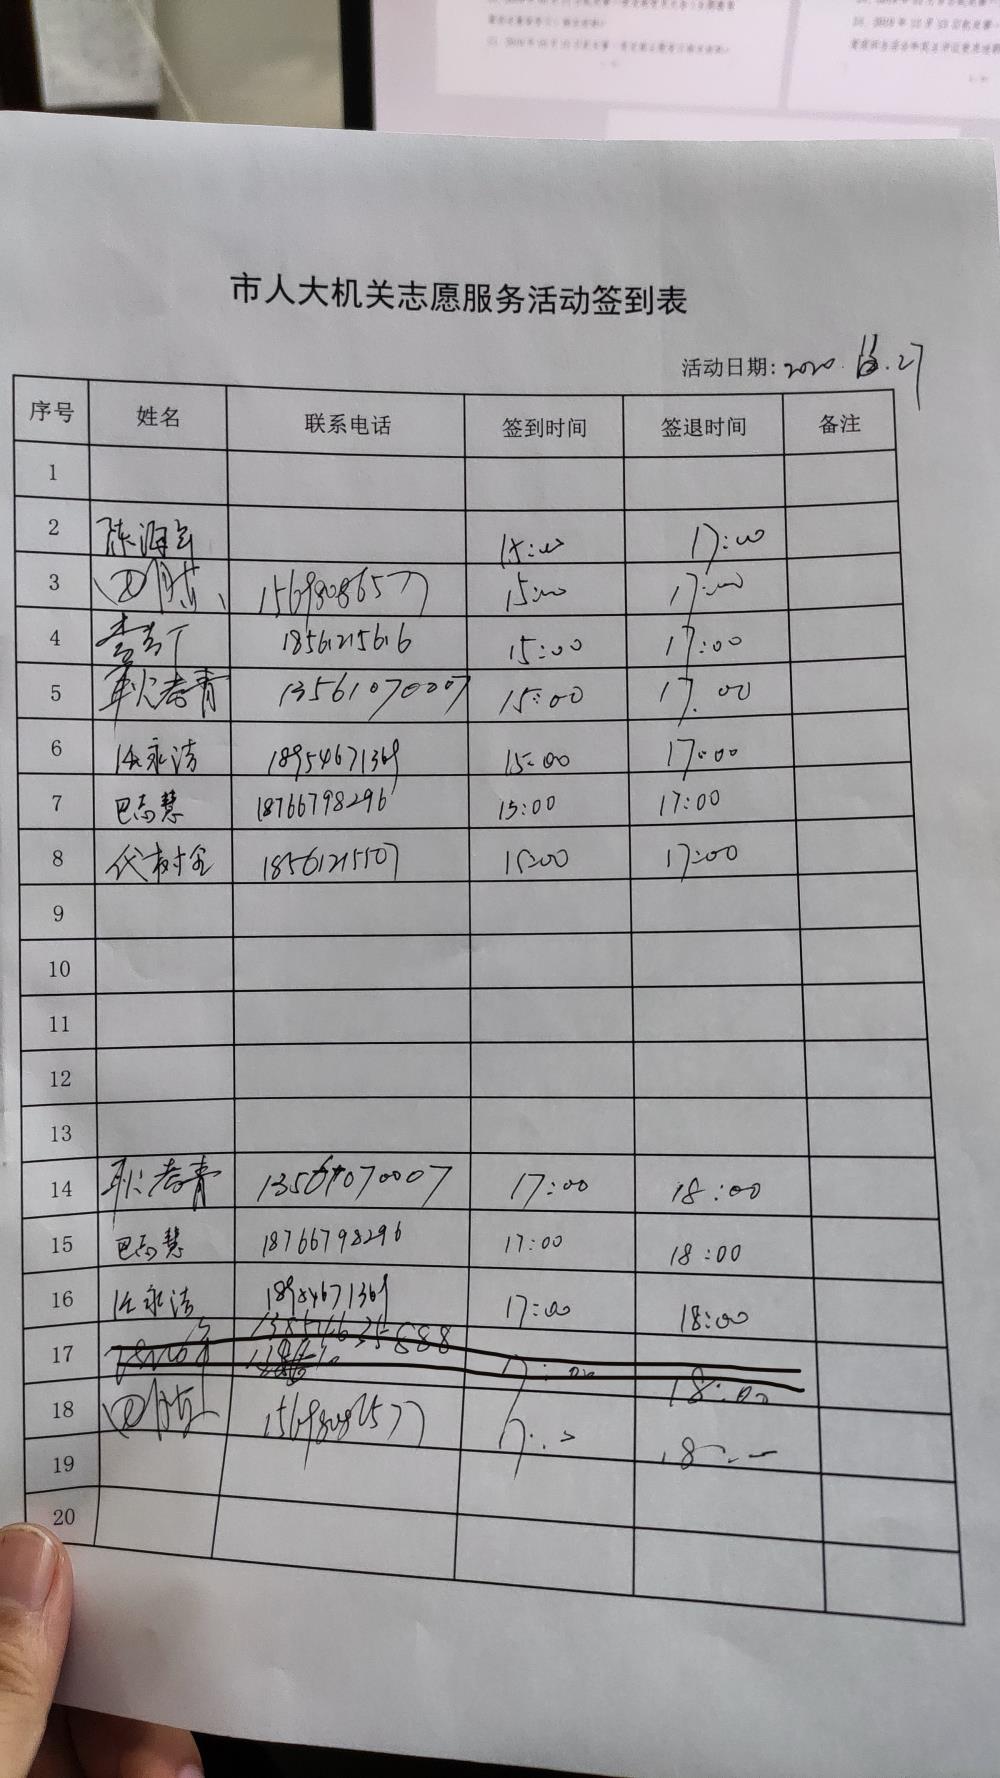 市人大机关志愿服务活动签到表
活动日期: 2020. .27
序号 姓名 联系电话 签到时间 签退时间 备注
1
2 陈海军 15:00 17:00
3 15698086577 15:00 17:00
4 18561215616 15:00 17:00
5 耿春青 13561070007 15:00 17:00
6 任永洁 18954671369 15:00 17:00
7 巴志慧 18766798296 15:00 17:00
8 代树全 18561215507 15:00 17:00
9
10
11
12
13
14 耿春青 13561070007 17:00 18:00
15 巴志慧 18766798296 17:00 18:00
16 任永洁 18954671369 17:00 18:00
17 17:00 18:00
18 15698086577
19
20